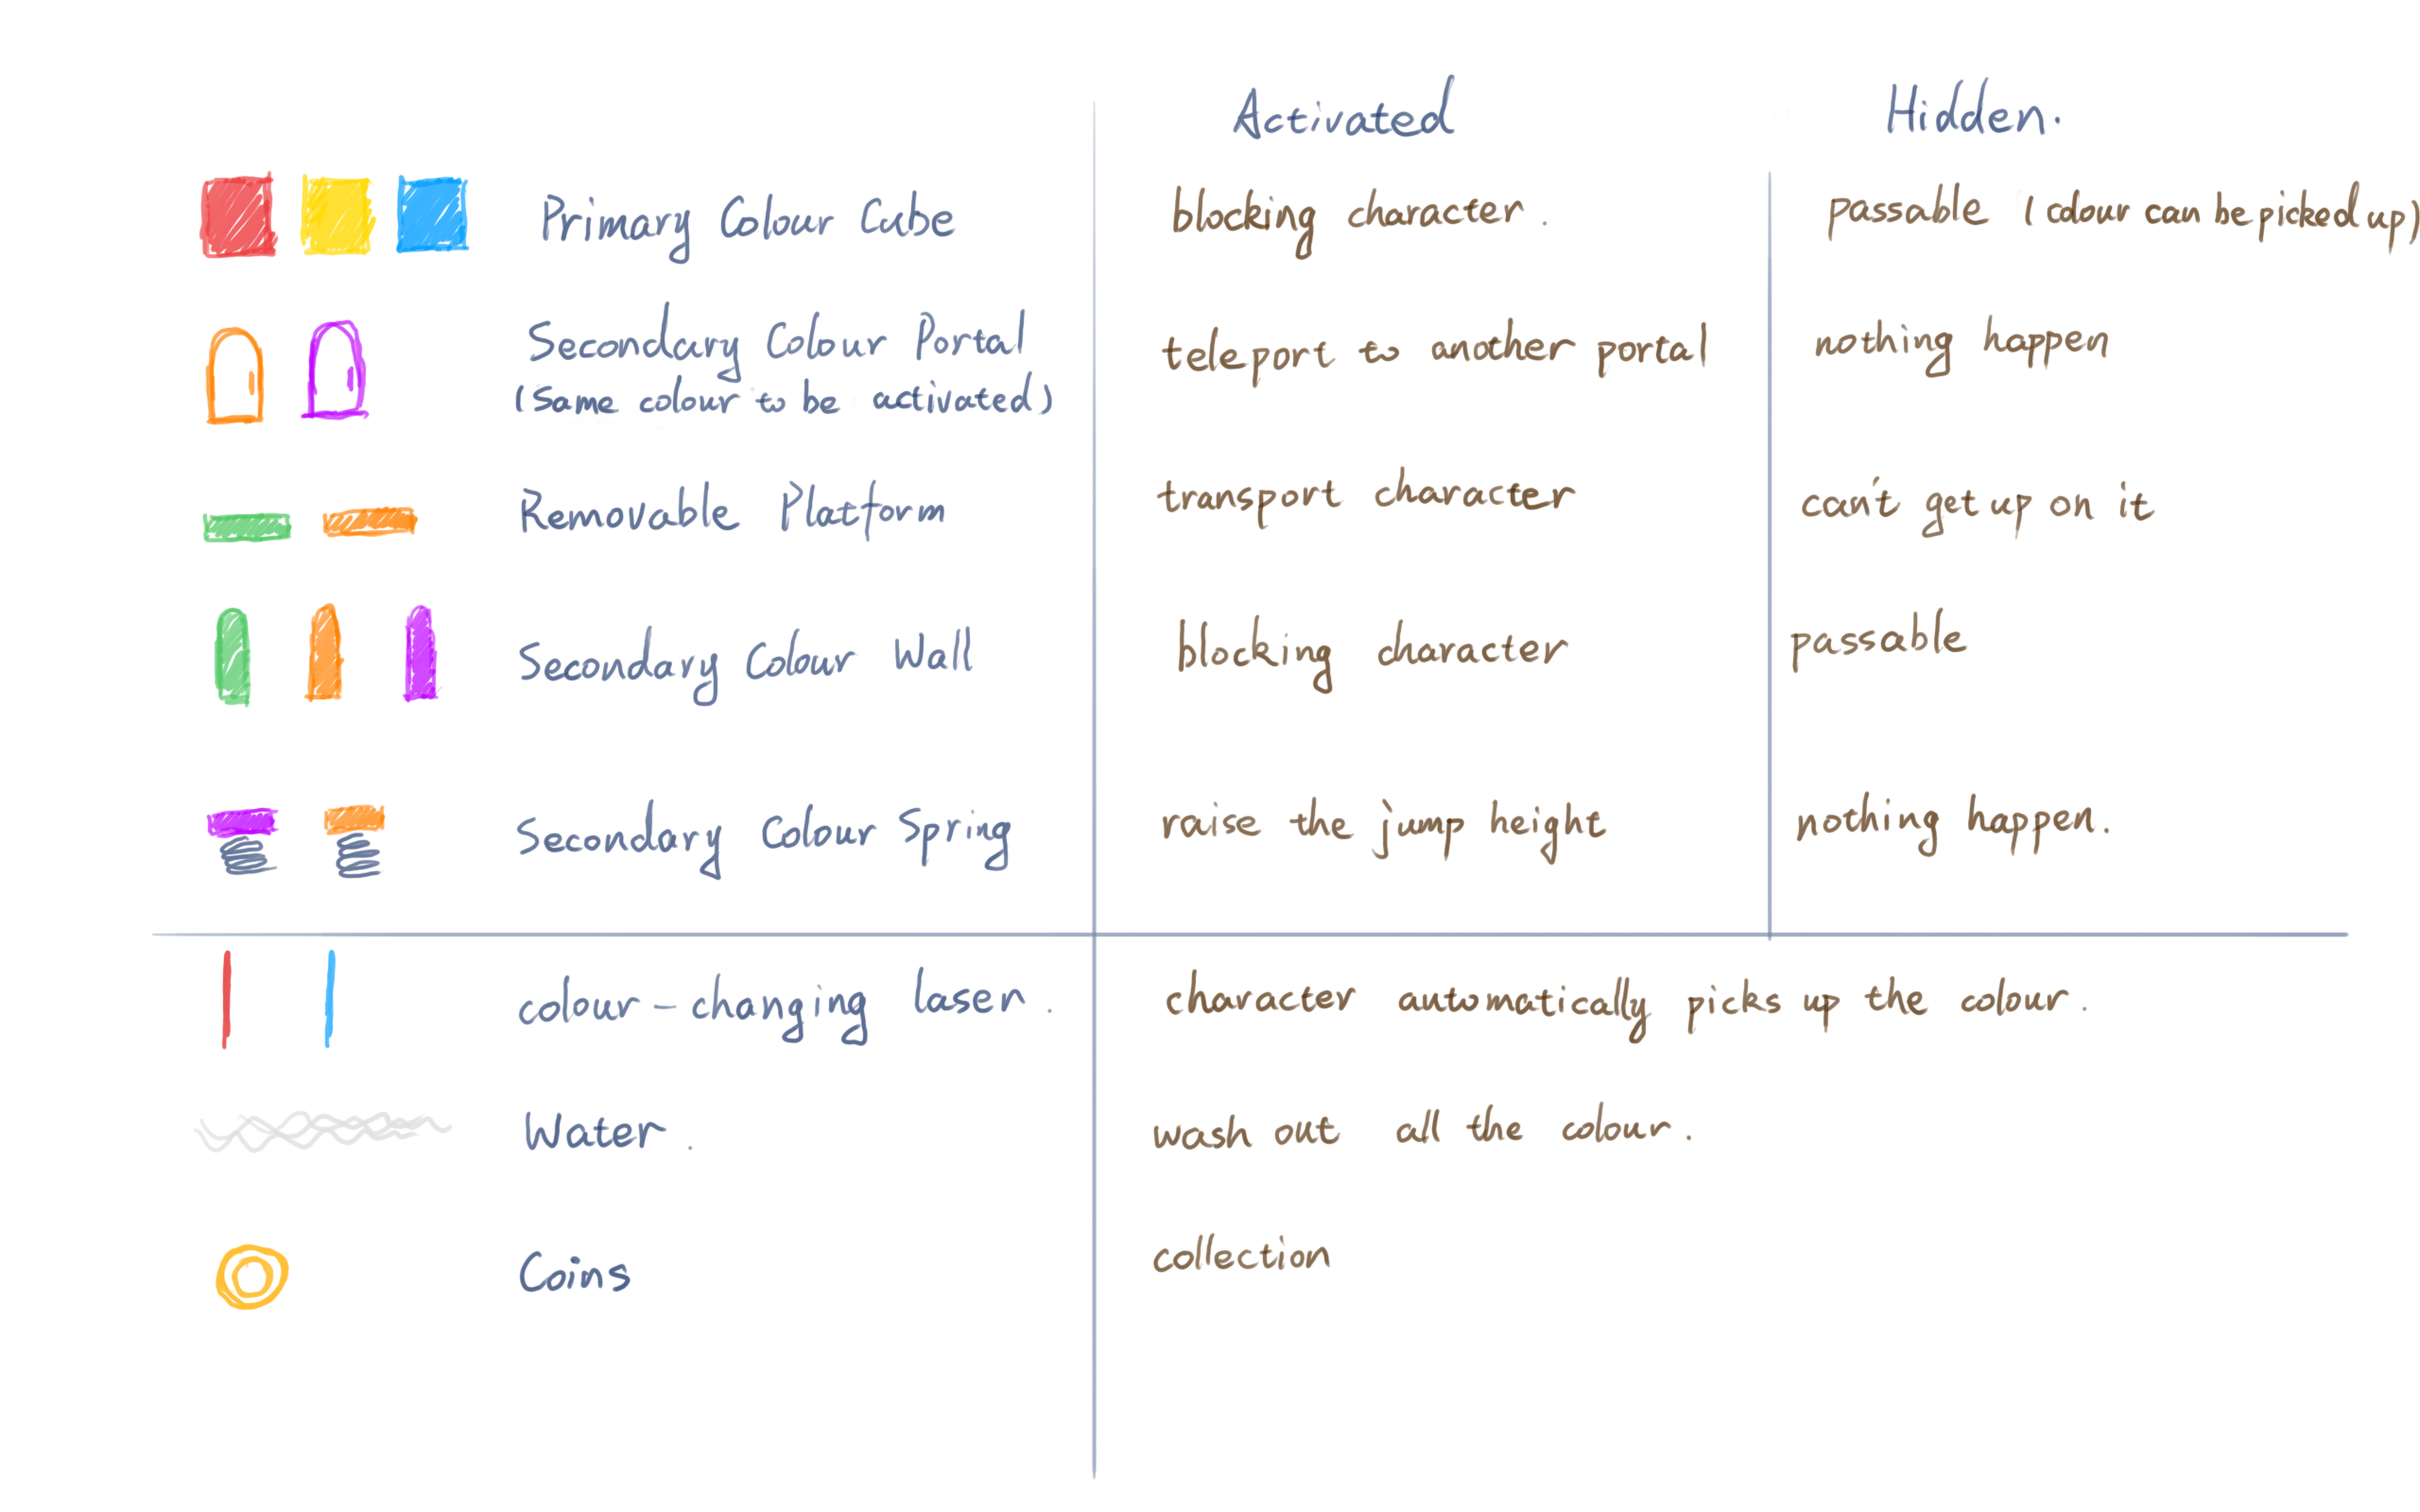 Activated Hidden.
Primary Colour Cube blocking character. passable (colour can be picked up)
Secondary Colour Portal teleport to another portal nothing happen
(Same colour to be activated)
Removable Platform transport character can't get up on it
Secondary Colour Wall blocking character passable
Secondary Colour Spring raise the jump height nothing happen.
colour-changing laser. character automatically picks up the colour.
Water. wash out all the colour.
Coins collection